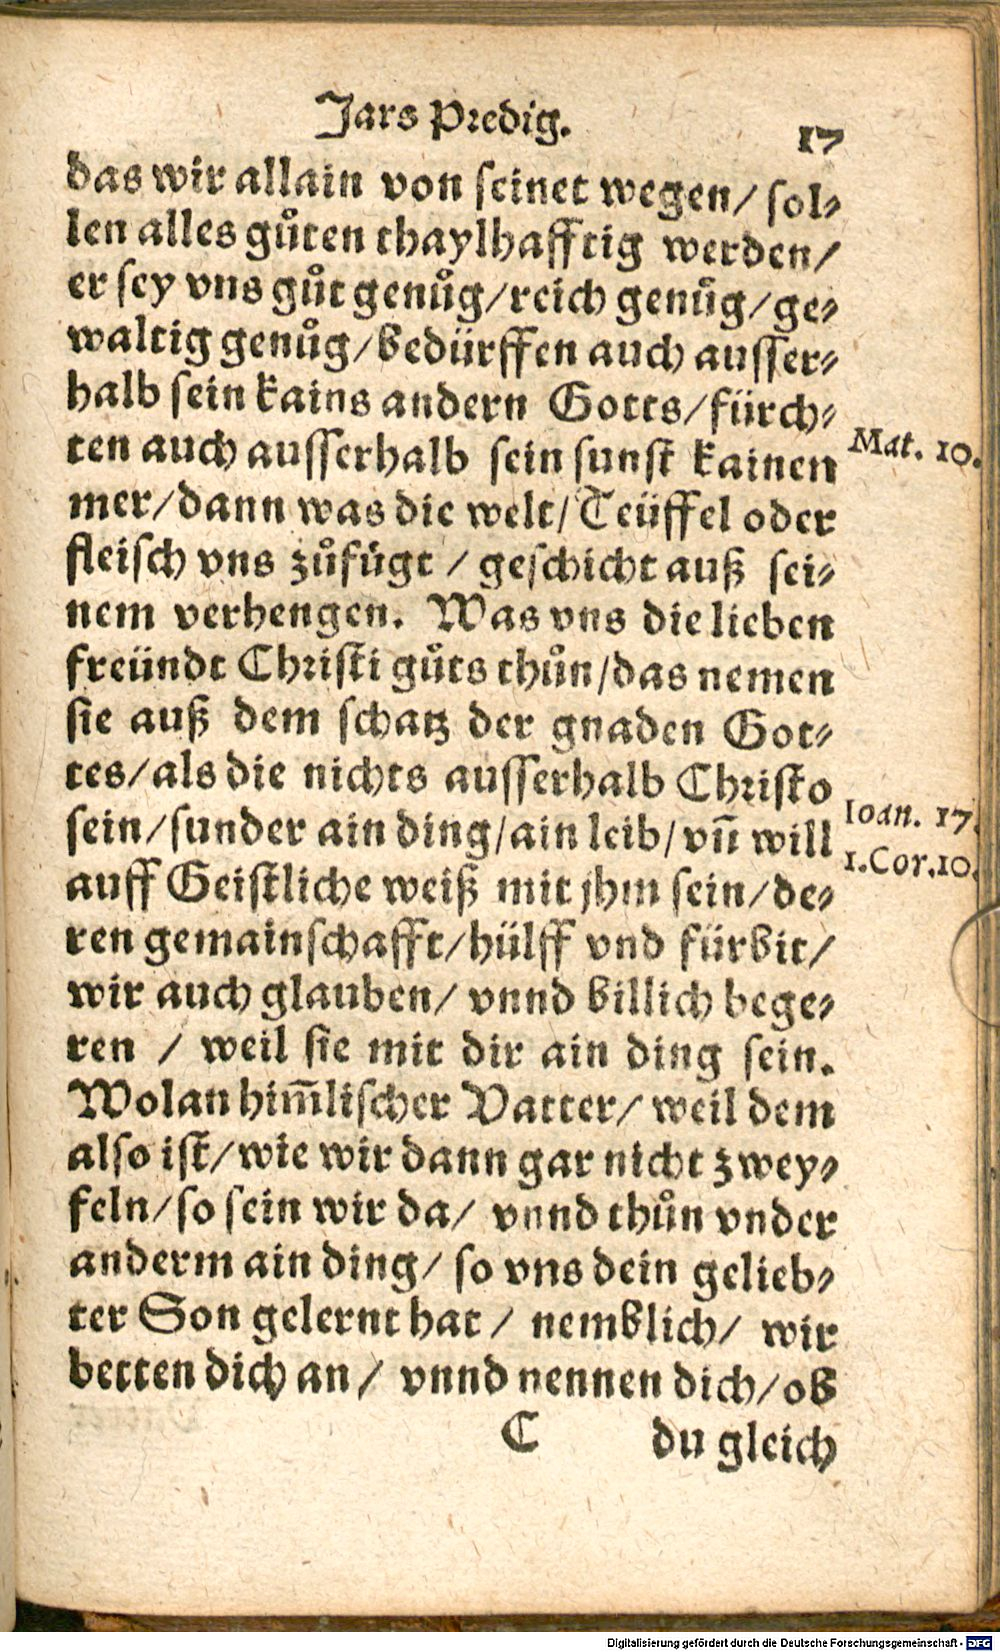 Jars Predig.
17
das wir allain von seinet wegen/ sol-
len alles gůten thaylhafftig werden/
er sey vns gůt genůg/reich genůg/ge-
waltig genůg/bedürffen auch ausser-
halb sein kains andern Gotts/fürch-
ten auch ausserhalb sein sunst kainen
Mat. 10.
mer/dann was die welt/Teüffel oder
fleisch vns zůfügt / geschicht auß sei-
nem verhengen. Was vns die lieben
freündt Christi gůts thůn/das nemen
sie auß dem schatz der gnaden Got-
tes/als die nichts ausserhalb Christo
Ioan. 17.
sein/sunder ain ding/ain leib/vñ will
1.Cor.10.
auff Geistliche weiß mit jhm sein/de-
ren gemainschafft/hülff vnd fürbit/
wir auch glauben/ vnnd billich bege-
ren / weil sie mit dir ain ding sein.
Wolan him̃lischer Vatter/ weil dem
also ist/wie wir dann gar nicht zwey-
feln/so sein wir da/ vnnd thůn vnder
anderm ain ding/ so vns dein gelieb-
ter Son gelernt hat / nemblich/ wir
betten dich an/ vnnd nennen dich/ob
C
du gleich
Digitalisierung gefördert durch die Deutsche Forschungsgemeinschaft - DFG